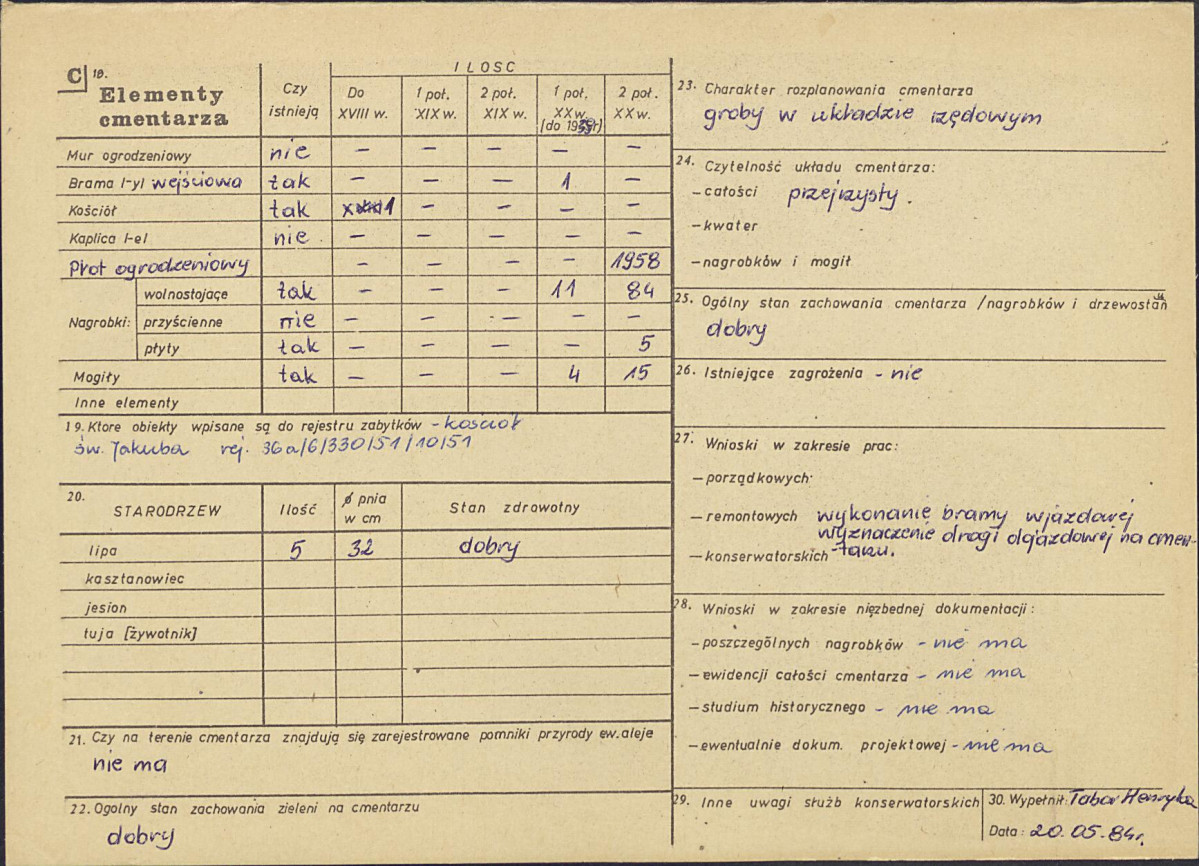 C 18. Elementy cmentarza
Czy istnieją
ILOSC
Do XVIII w.
1 poł. XIX w.
2 poł. XIX w.
1 poł. XX w. [do 1939r]
2 poł. XX w.
Mur ogrodzeniowy nie – – – – –
Brama /-y/ wejściowa tak – – – 1 –
Kościół tak 1 – – – –
Kaplica /-e/ nie – – – – –
Płot ogrodzeniowy – – – – 1958
Nagrobki: wolnostojące tak – – – 11 84
przyścienne nie – – – – –
płyty tak – – – – 5
Mogiły tak – – – 4 15
Inne elementy
19. Ktore obiekty wpisane są do rejestru zabytków – kościół
św. Jakuba rej. 36a/6/330/51/10/51
20. STARODRZEW Ilość ϕ pnia w cm Stan zdrowotny
lipa 5 32 dobry
kasztanowiec
jesion
tuja [żywotnik]
21. Czy na terenie cmentarza znajdują się zarejestrowane pomniki przyrody ew. aleje
nie ma
22. Ogolny stan zachowania zieleni na cmentarzu
dobry
23. Charakter rozplanowania cmentarza
groby w układzie rzędowym
24. Czytelność układu cmentarza:
– całości przejrzysty.
– kwater
– nagrobków i mogił
25. Ogólny stan zachowania cmentarza /nagrobków i drzewostan
dobry
26. Istniejące zagrożenia – nie
27. Wnioski w zakresie prac:
– porządkowych
– remontowych wykonanie bramy wjazdowej
wyznaczenie drogi dojazdowej na cmen-
– konserwatorskich -tarzu.
28. Wnioski w zakresie nięzbednej dokumentacji:
– poszczególnych nagrobków – nie ma
– ewidencji całości cmentarza – nie ma
– studium historycznego – nie ma
– ewentualnie dokum. projektowej – nie ma
29. Inne uwagi służb konserwatorskich
30. Wypełnił: Tabor Henryka
Data: 20.05.84r.